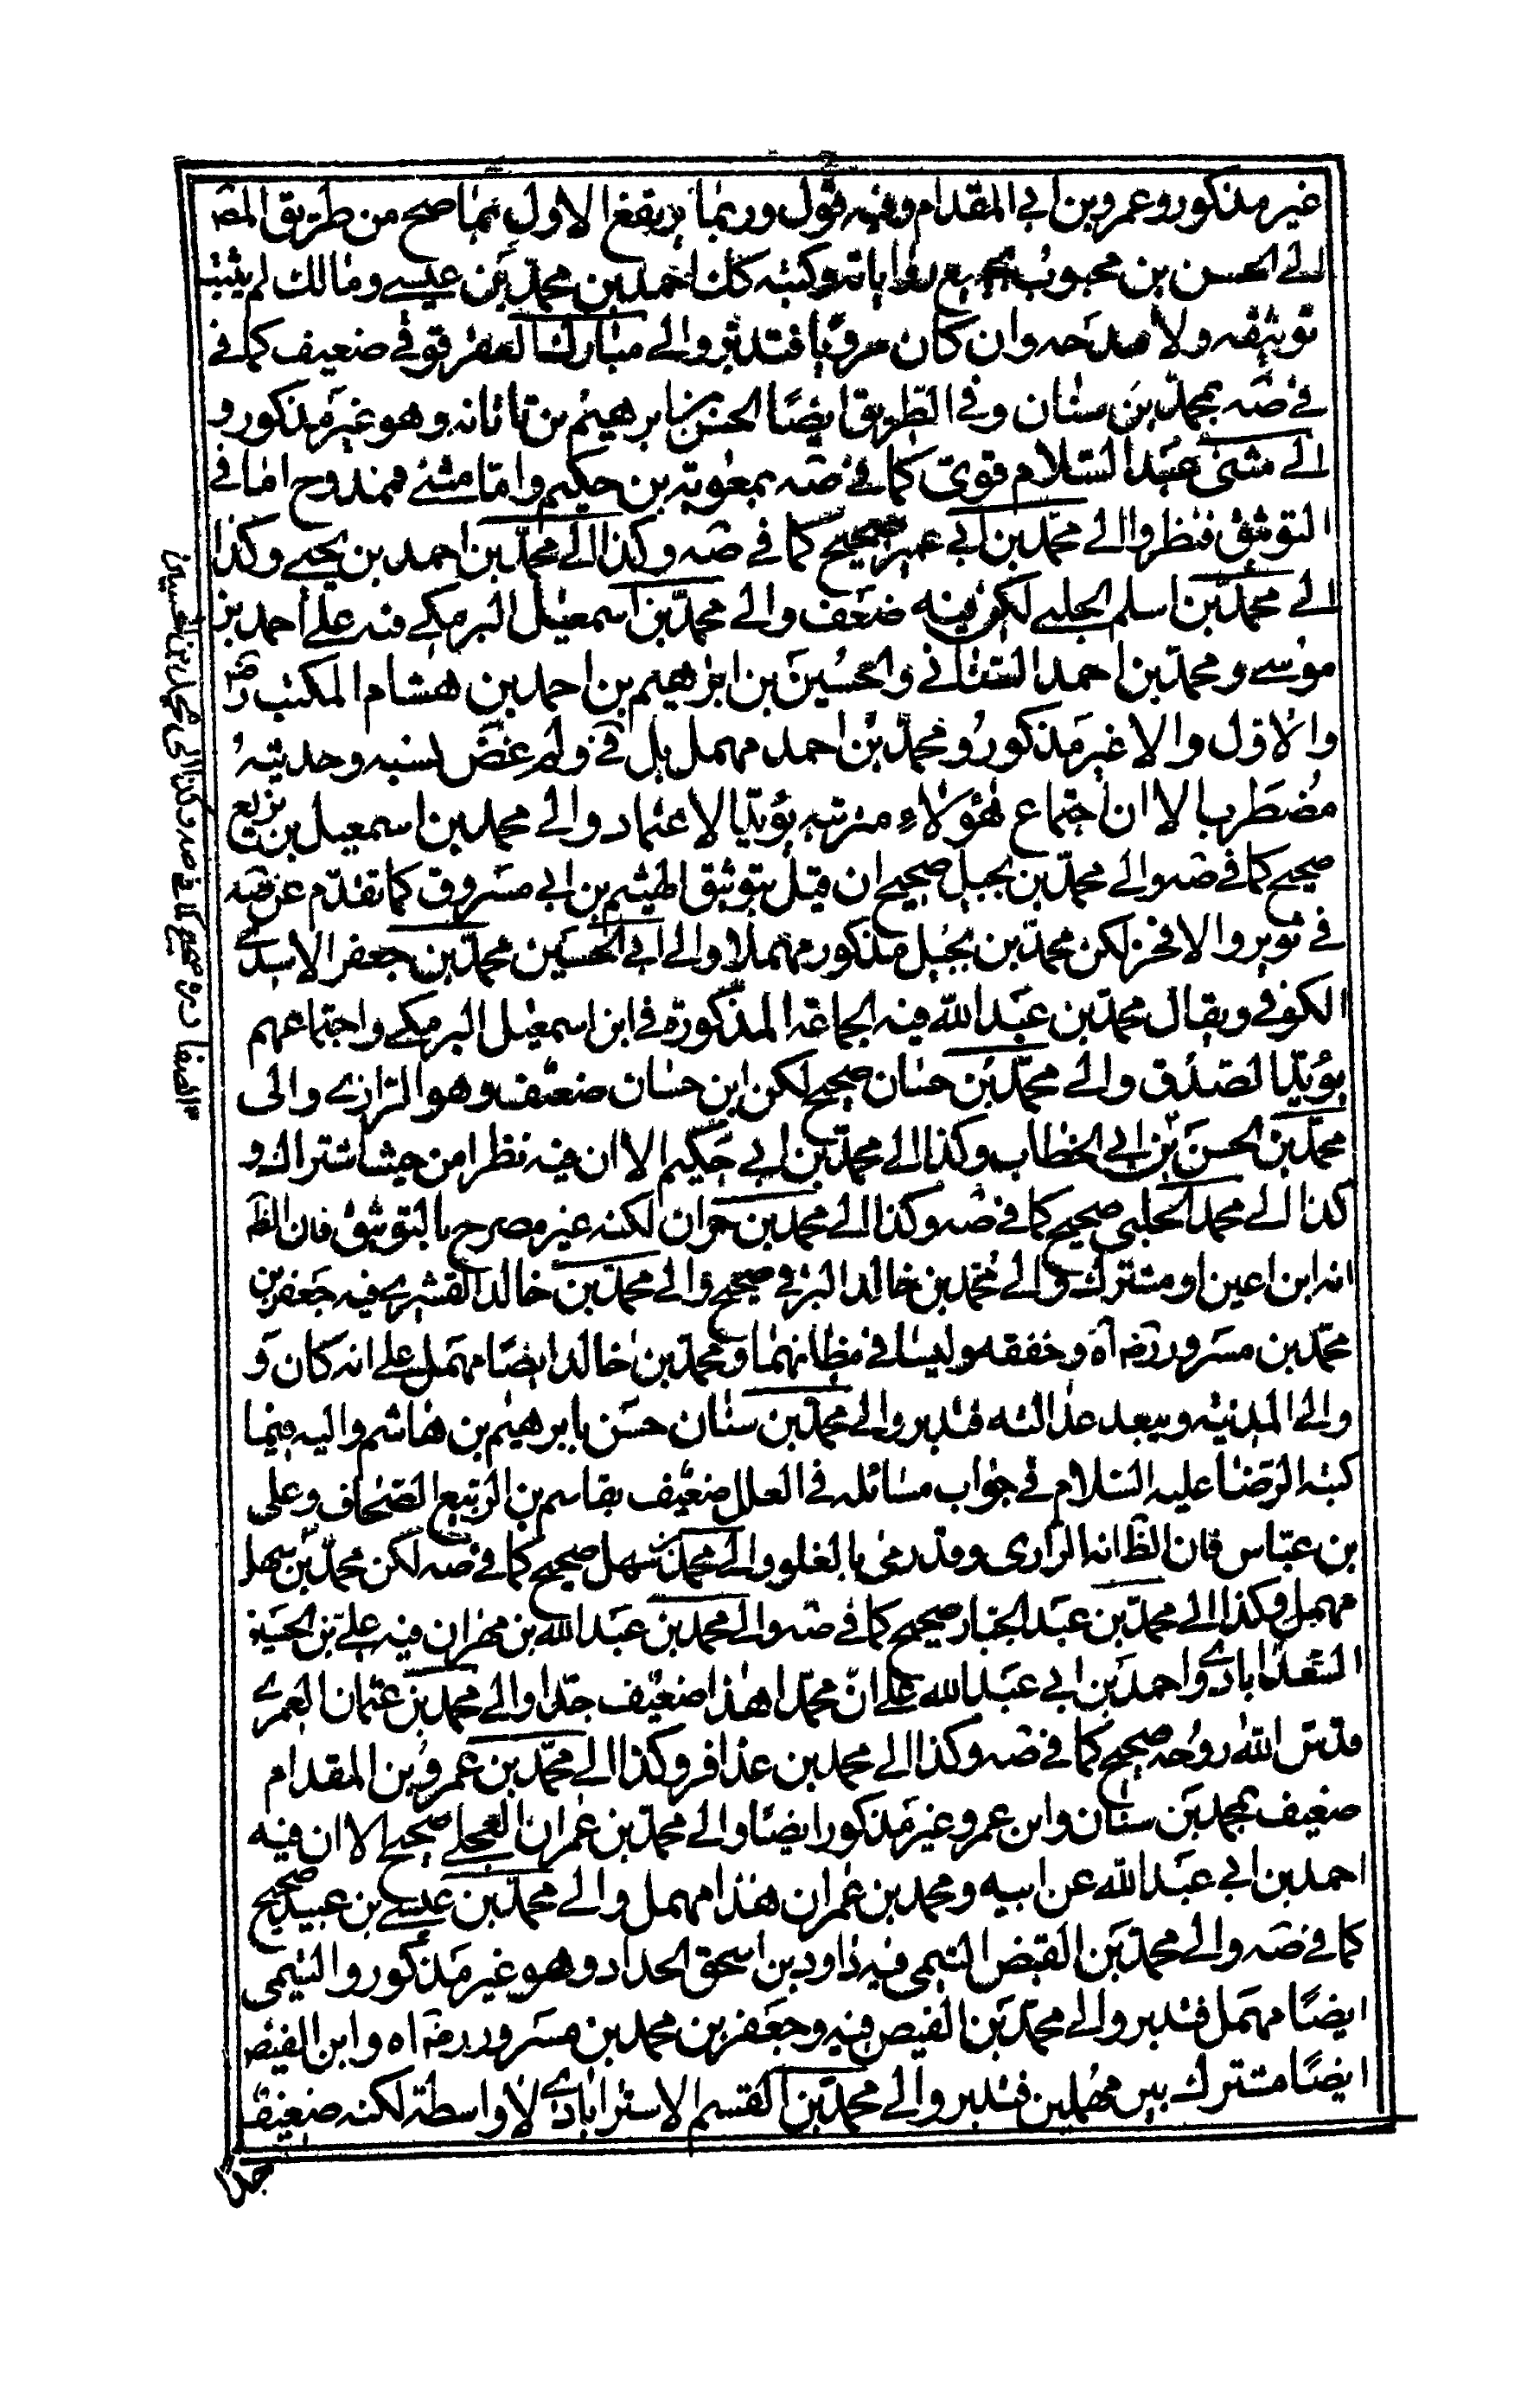 غير مذكور وعمرو بن ابي المقدام وفيه قول وربما يرتفع الاول بما صح من طريق المص
الى الحسن بن محبوب بجميع رواياته وكتبه كان احمد بن محمد بن عيسى ومالك لم يثبت
توثيقه ولا مدحه وان كان مرويا فتدبر والى مبارك العقرقوفي ضعيف كما في
في صه بمحمد بن سنان وفي الطريق ايضا الحسن بن ابرهيم بن تاتانه وهو غير مذكور و
الى مثنى عبد السلام قوى كما في صه بمعوية بن حكيم واما مثنى فممدوح اما في
التوثيق فنظر والى محمد بن ابي عمير صحيح كما في صه وكذا الى محمد بن احمد بن يحيى وكذا
الى محمد بن اسلم الجبلى لكن فيه ضعف والى محمد بن اسمعيل البرمكى فيه على احمد بن
موسى ومحمد بن احمد السنانى والحسين بن ابرهيم بن احمد بن هشام المكتب رضى
والاول والا غير مذكور ومحمد بن احمد مهمل بل في ولم غض نسبه وحديثه
مضطربا الا ان اجتماع هؤلاء مرتبه يؤيد الاعتماد والى محمد بن اسمعيل بن بزيع
صحيح كما في صه والى محمد بن بجيل صحيح ان قيل بتوثيق الهيثم بن ابي مسروق كما تقدم عن صه
في ثوير والا فحز لكن محمد بن بجيل مذكور مهملا والى ابي الحسين محمد بن جعفر الاسدى
الكوفى ويقال محمد بن عبد الله فيه الجماعة المذكورة في ابن اسمعيل البرمكى واجتماعهم
يؤيد الصدق والى محمد بن حسان صحيح لكن ابن حسان ضعيف وهو الرازى والى
محمد بن الحسن بن ابي الخطاب وكذا الى محمد بن ابي حكيم الا ان فيه نظرا من حيث اشتراك و
كذا الى محمد الحلبى صحيح كما في صه وكذا الى محمد بن حمران لكنه غير مصرح بالتوثيق فان الظ
انه ابن اعين او مشترك والى محمد بن خالد البرقى صحيح والى محمد بن خالد القشرى فيه جعفر بن
محمد بن مسرور رضه اه وخفقه وليسا في مظانهما ومحمد بن خالد ايضا مهمل على انه كان و
والى المدينه ويبعد عدالته فتدبر والى محمد بن سنان حسن بابرهيم بن هاشم واليه فيما
كتبه الرضا عليه السلام في جواب مسائله في العلل ضعيف بقاسم بن الربيع الصحاف وعلى
بن عباس فان الظ انه الرازى وقد رمى بالغلو والى محمد بن سهل صحيح كما في صه لكن محمد بن سهل
مهمل وكذا الى محمد بن عبد الجبار صحيح كما في صه والى محمد بن عبد الله بن مهران فيه على بن الحسين
السعدابادى واحمد بن ابي عبد الله على ان محمدا هذا ضعيف جدا والى محمد بن عثمان العمرى
قدس الله روحه صحيح كما في صه وكذا الى محمد بن عذافر وكذا الى محمد بن عمرو بن المقدام
ضعيف بمحمد بن سنان وابن عمرو غير مذكور ايضا والى محمد بن عمران العجلى صحيح الا ان فيه
احمد بن ابي عبد الله عن ابيه ومحمد بن عمران هذا مهمل والى محمد بن عيسى بن عبيد صحيح
كما في صه والى محمد بن القبض التيمى فيه داود بن اسحق الحداد وهو غير مذكور والتيمى
ايضا مهمل فتدبر والى محمد بن الفيص فيه وجعفر بن محمد بن مسرور رضه اه وابن الفيض
ايضا مشترك بين مهملين فتدبر والى محمد بن القسم الاسترابادى لا واسطة لكنه ضعيف
جدا
الصفار رض صحيح كما في صه وكذا الى محمد بن الحسين